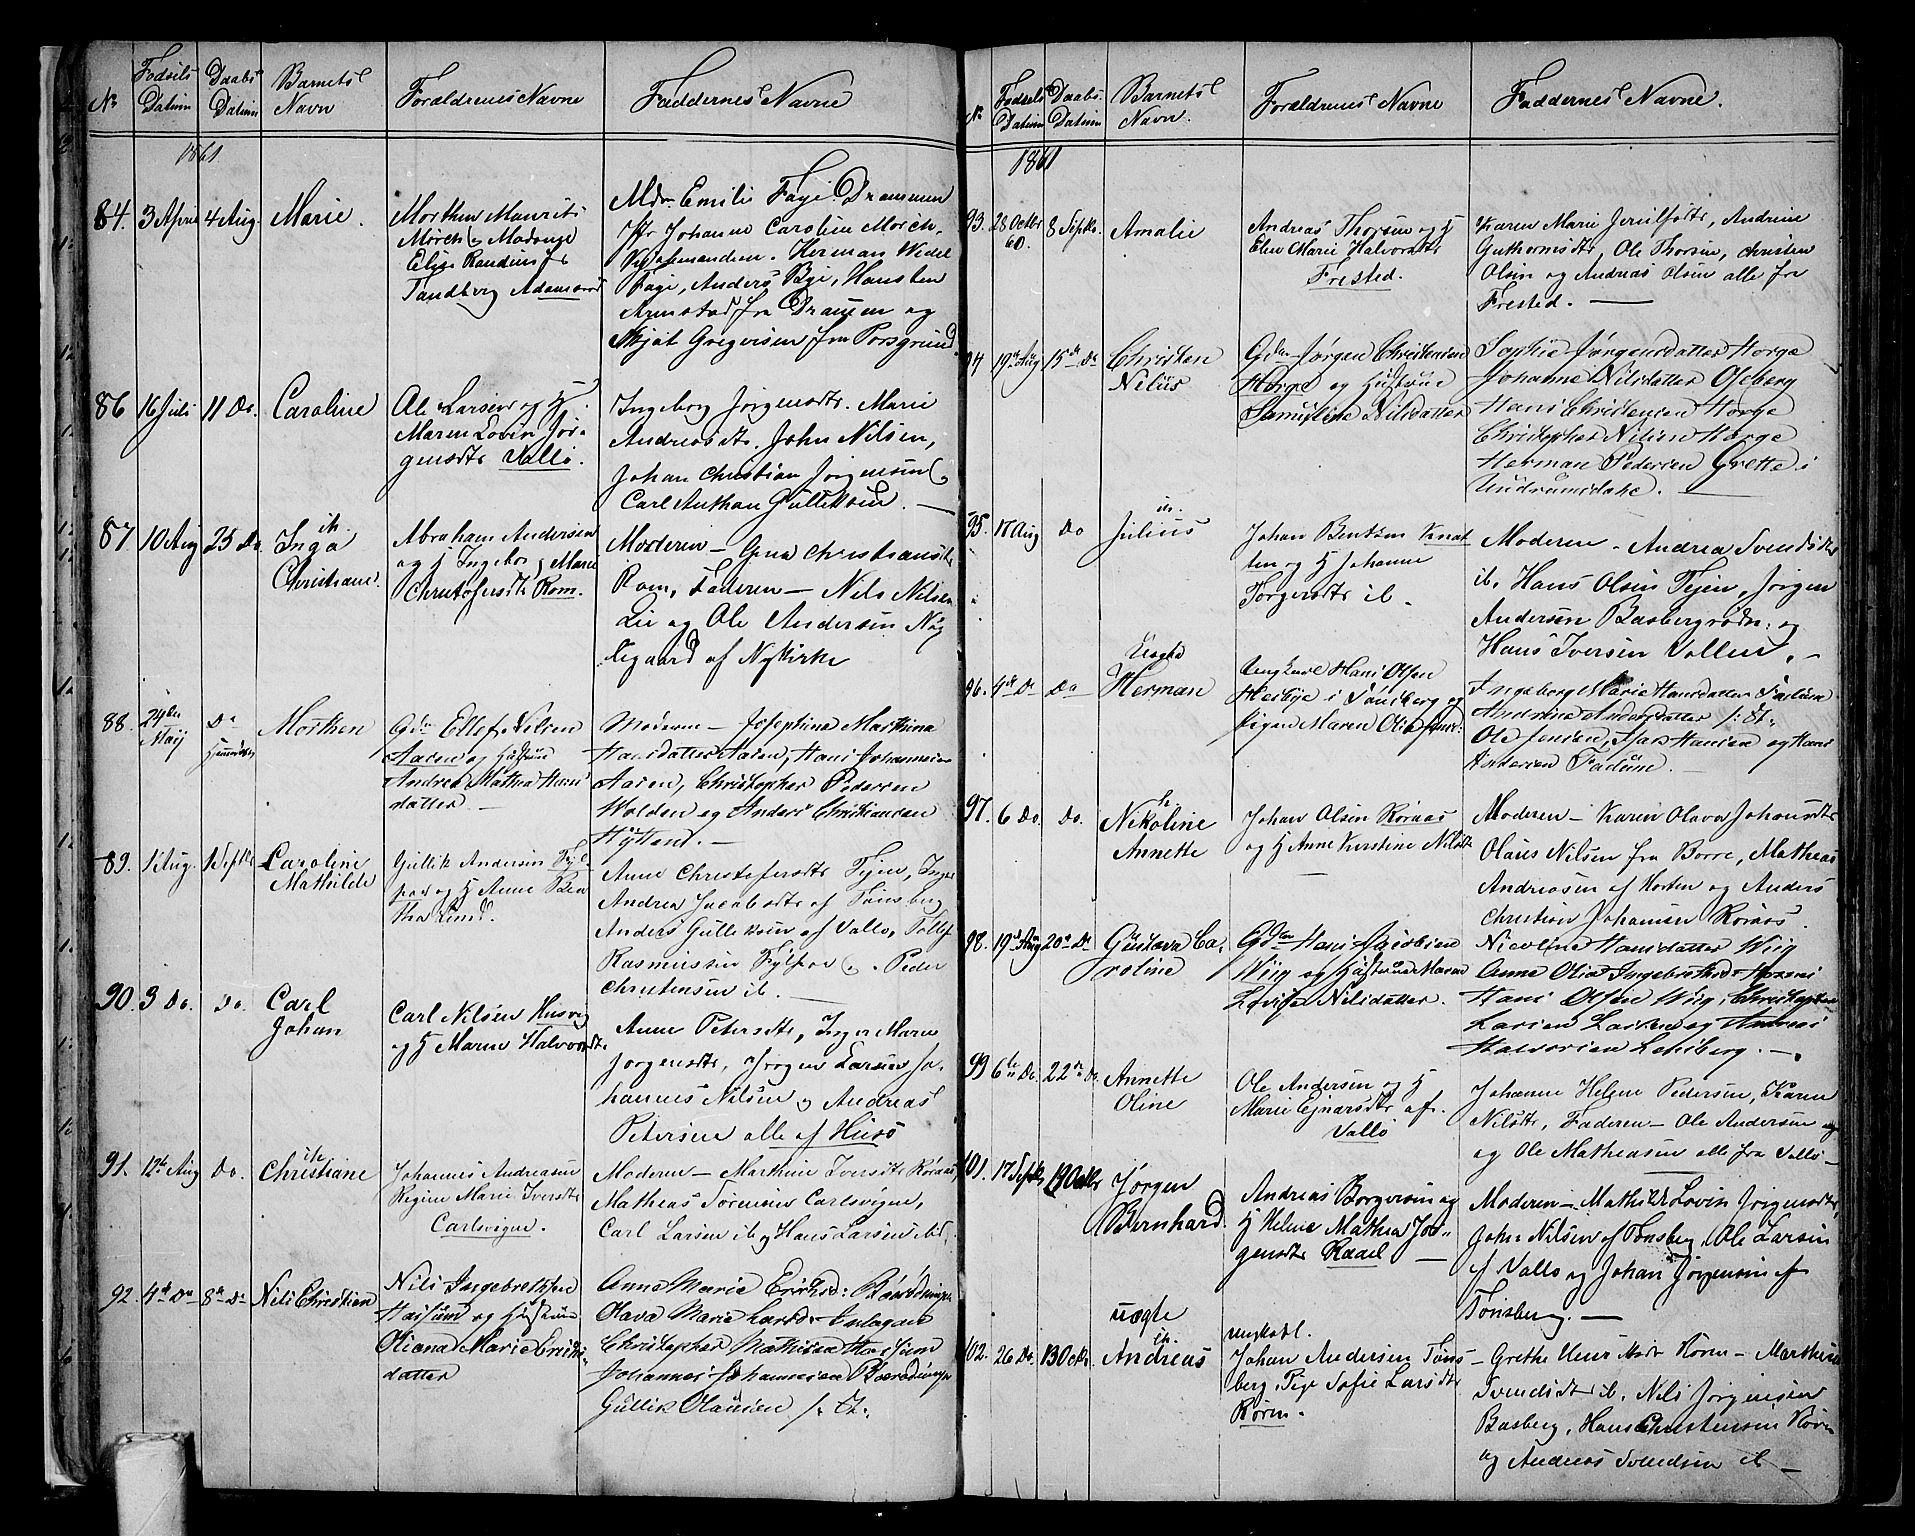 No Fødsels Datum Daabs Datum Barnets Navn Forældrenes Navne Faddernes Navne
1861
84. 3 April 4 Aug. Marie.
Morthen Maurits
Mørch og Madange
Elise
Tandberg
Mdm Emilie Faye Drammen
Jfr Johanne Caroline Mørch
Herman Wedel
Faye, Anders Bye, Hans
fra Drammen og
Gregersen fra Porsgrund
86 16 Juli 11 Do. Caroline
Ole Larsen og H
Maren Lovise Jør-
gensdtr Vallø.
Ingeborg Jørgensdtr. Marie
Andreasdtr. John Nilsen,
Johan Christian Jørgensen og
Carl Anthon Gulliksen. —
87 10 Aug 25 Do. Inga
Christiane.
Abraham Andersen
og H Ingeborg Marie
Christofersdtr Rom.
Moderen — Christiansdtr
Rom, Faderen — Nils Nilsen
Lie og Ole Andersen Nøg
legaard af Nykirke
88. 24de Maij Do Morthen
Gdm Ellef Nilsen
Aasen og Hustrue
Andrea Mathea Hans
datter —
Moderen — Josephine Marthina
Hansdatter Aasen, Hans Johannesen
Aasen, Christopher Pedersen
Wolden og Anders Christiansen
89. 1 Aug. 1 Septbr Caroline
Mathilde
Gullik Andersen Fyl-
paa og H Anne Bea
tha
Anne Christofersdtr Tejen, Inger
Andrea Jacobsdtr af Tønsberg
Anders Gulliksen af Vallø,
Rasmussen Fylpaa og Peder
Christensen ib. —
90. 3 Do. Do. Carl
Johan
Carl Nilsen Husvig
og H Maren Halvorsdtr
Anne Petersdtr, Inger Marie
Jørgensdtr, Jørgen Larsen Jo-
hannes Nilsen og Andreas
Petersen alle af Husø
91. 12te Aug Do. Christiane
Johannes Andreasen
Regine Marie Iversdtr
Carlsvigen.
Moderen — Marthine Iversdtr Røraas,
Mathias Sørensen Carlsvigen,
Carl Larsen ib og Hans Larsen ibd.
92. 4de Do 8de Do Nils Christian
Nils Ingebrethsen
og Hustrue
Oliana Marie Erichs-
datter
Anne Marie Ericksd:
Olava Marie Larsd:
Christopher Mathisen
Johannes Johannesen
Gullik Olausen
No Fødsels Datum Daabs. Datum Barnets Navn. Forældrenes Navne Faddernes Navne.
1861
93. 28 Octbr 60. 8 Septbr. Amalie
Andreas Thorsen og H
Elen Marie Halvorsdtr
Frested.
Karen Marie Andrine
Guthormsdtr, Ole Thorsen, Christen
Olsen og Andreas Olsen alle fra
Frested. —
94 19de Aug 15de Do Christen
Nilus
Gdm Jørgen Christensen
Horge og Hustrue
Samueline Nilsdatter
Sophie Jørgensdatter Horge
Johanne Nilsdatter Oseberg
Hans Christensen Horge
Christopher Nilsen Horge
Herman Pedersen Grette i
Undrumsdahl. —
95. 17 Aug Do Julius
Johan Bentsen Knat
ten og H Johanne
Torgersdtr ib.
Moderen — Andrea Svendsdtr
ib. Hans Olsen Tejen, Jørgen
Andersen Basbergrødn: og
Hans Iversen Vollen. —
96. 4de Do Do Uægte
Herman
Ungkarl Hans Olsen
Heibye i Tønsberg og
Pigen Maren Olia
Ingeborg Marie Hansdatter Fadum
Andrine Andersdatter
Ole Jensen, Hansen og Hans
Andersen Fadum. —
97. 6 Do. Do. Nikoline
Annette
Johan Olsen Røraas
og H Anne Kirstine Nilsdtr
Moderen — Karen Olava Johansdtr
Olaus Nilsen fra Borre, Mathias
Andreasen af Horten og Anders
Christian Johansen Røraas.
98. 19de Aug 20de Do Gustava Ca-
roline
Gdm Hans Jacobsen
Wiig og Hustrue Maren
Lovise Nilsdatter.
Nicoline Hansdatter Wiig
Anne Olia
Hans Olsen Wiig, Christopher
Larsen og Andreas
Halvorsen —.
99 6te Do. 22de Do. Annette
Oline
Ole Andersen og H
Marie Ejnarsdtr af
Vallø
Johanne Helene Pedersen, Karen
Nilsdtr, Faderen — Ole Andersen
og Ole Mathiasen alle fra Vallø —
101. 17 Septbr Jørgen
Bernhard.
Andreas Borgersen og
H Helene Mathea Jør-
gensdtr Raael —
Moderen — Mathilde Lovise Jørgensdtr,
John Nilsen af Tønsberg, Ole Larsen
af Vallø og Johan Jørgensen af
Tønsberg. —
102. 26 Do. uægte
Andreas
ungkarl.
Johan Andersen Tøns-
berg, Pige Sofie Larsdtr
Røren.
Grethe Røren — Marthea
Svendsdtr ib. Nils Jørgensen
Basberg, Hans Christensen Røren
og Andreas Svendsen ib —